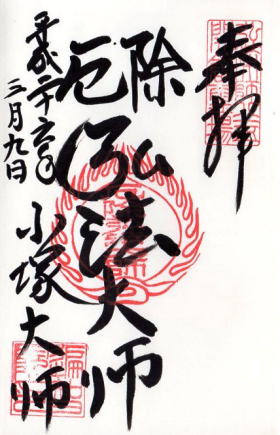 奉拝
除厄
弘法大師
平成二十六年
三月九日
小塚大師